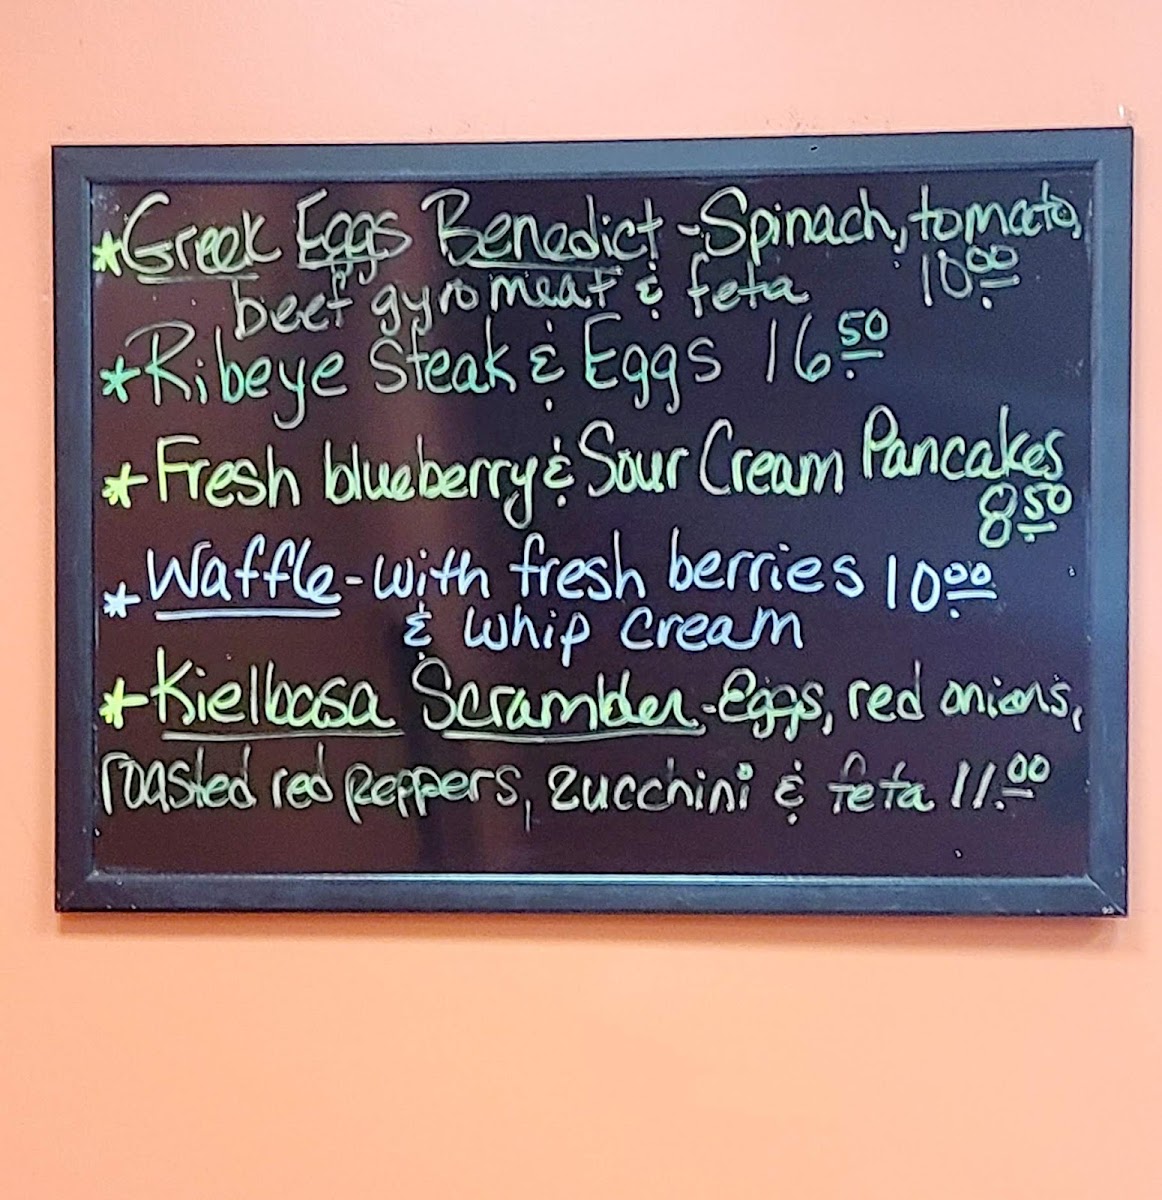 *Greek Eggs Benedict - Spinach, tomato,
beef gyro meat & feta 10.00
*Ribeye Steak & Eggs 16.50
*Fresh blueberry & Sour Cream Pancakes
8.50
*Waffle - with fresh berries 10.00
& whip cream
*Kielbasa Scrambler - Eggs, red onions,
roasted red peppers, zucchini & feta 11.00